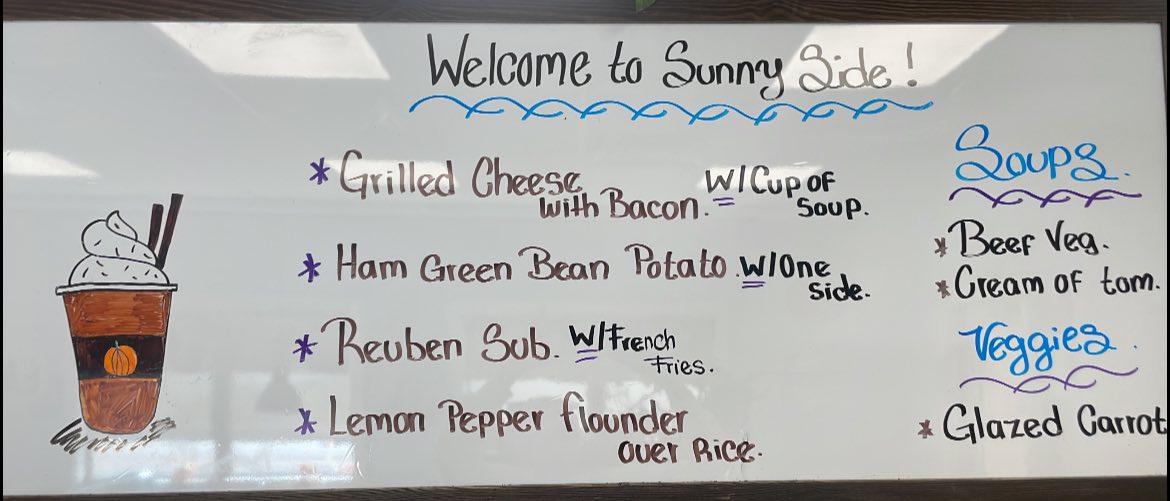 Welcome to Sunny Side!
* Grilled Cheese
with Bacon. W/Cup of
Soup.
* Ham Green Bean Potato. W/One
Side.
* Reuben Sub. W/French
Fries.
* Lemon Pepper flounder
over Rice.
Soups.
* Beef Veg.
* Cream of tom.
Veggies.
* Glazed Carrot